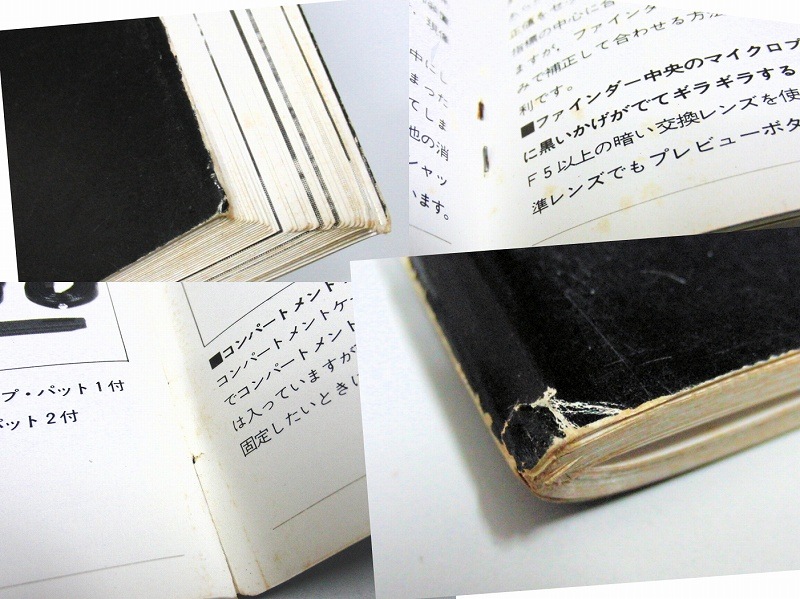 中にし
まった
てしま
他の消
シャッ
います。
指標の中心に合
ますが、ファインダ
みで補正して合わせる方法
利です。
■ファインダー中央のマイクロプ
に黒いかげがでてギラギラする
F5以上の暗い交換レンズを使
準レンズでもプレビューボタ
プ・パット1付
パット2付
■コンパートメント
コンパートメントケー
でコンパートメント
は入っていますが
固定したいときに